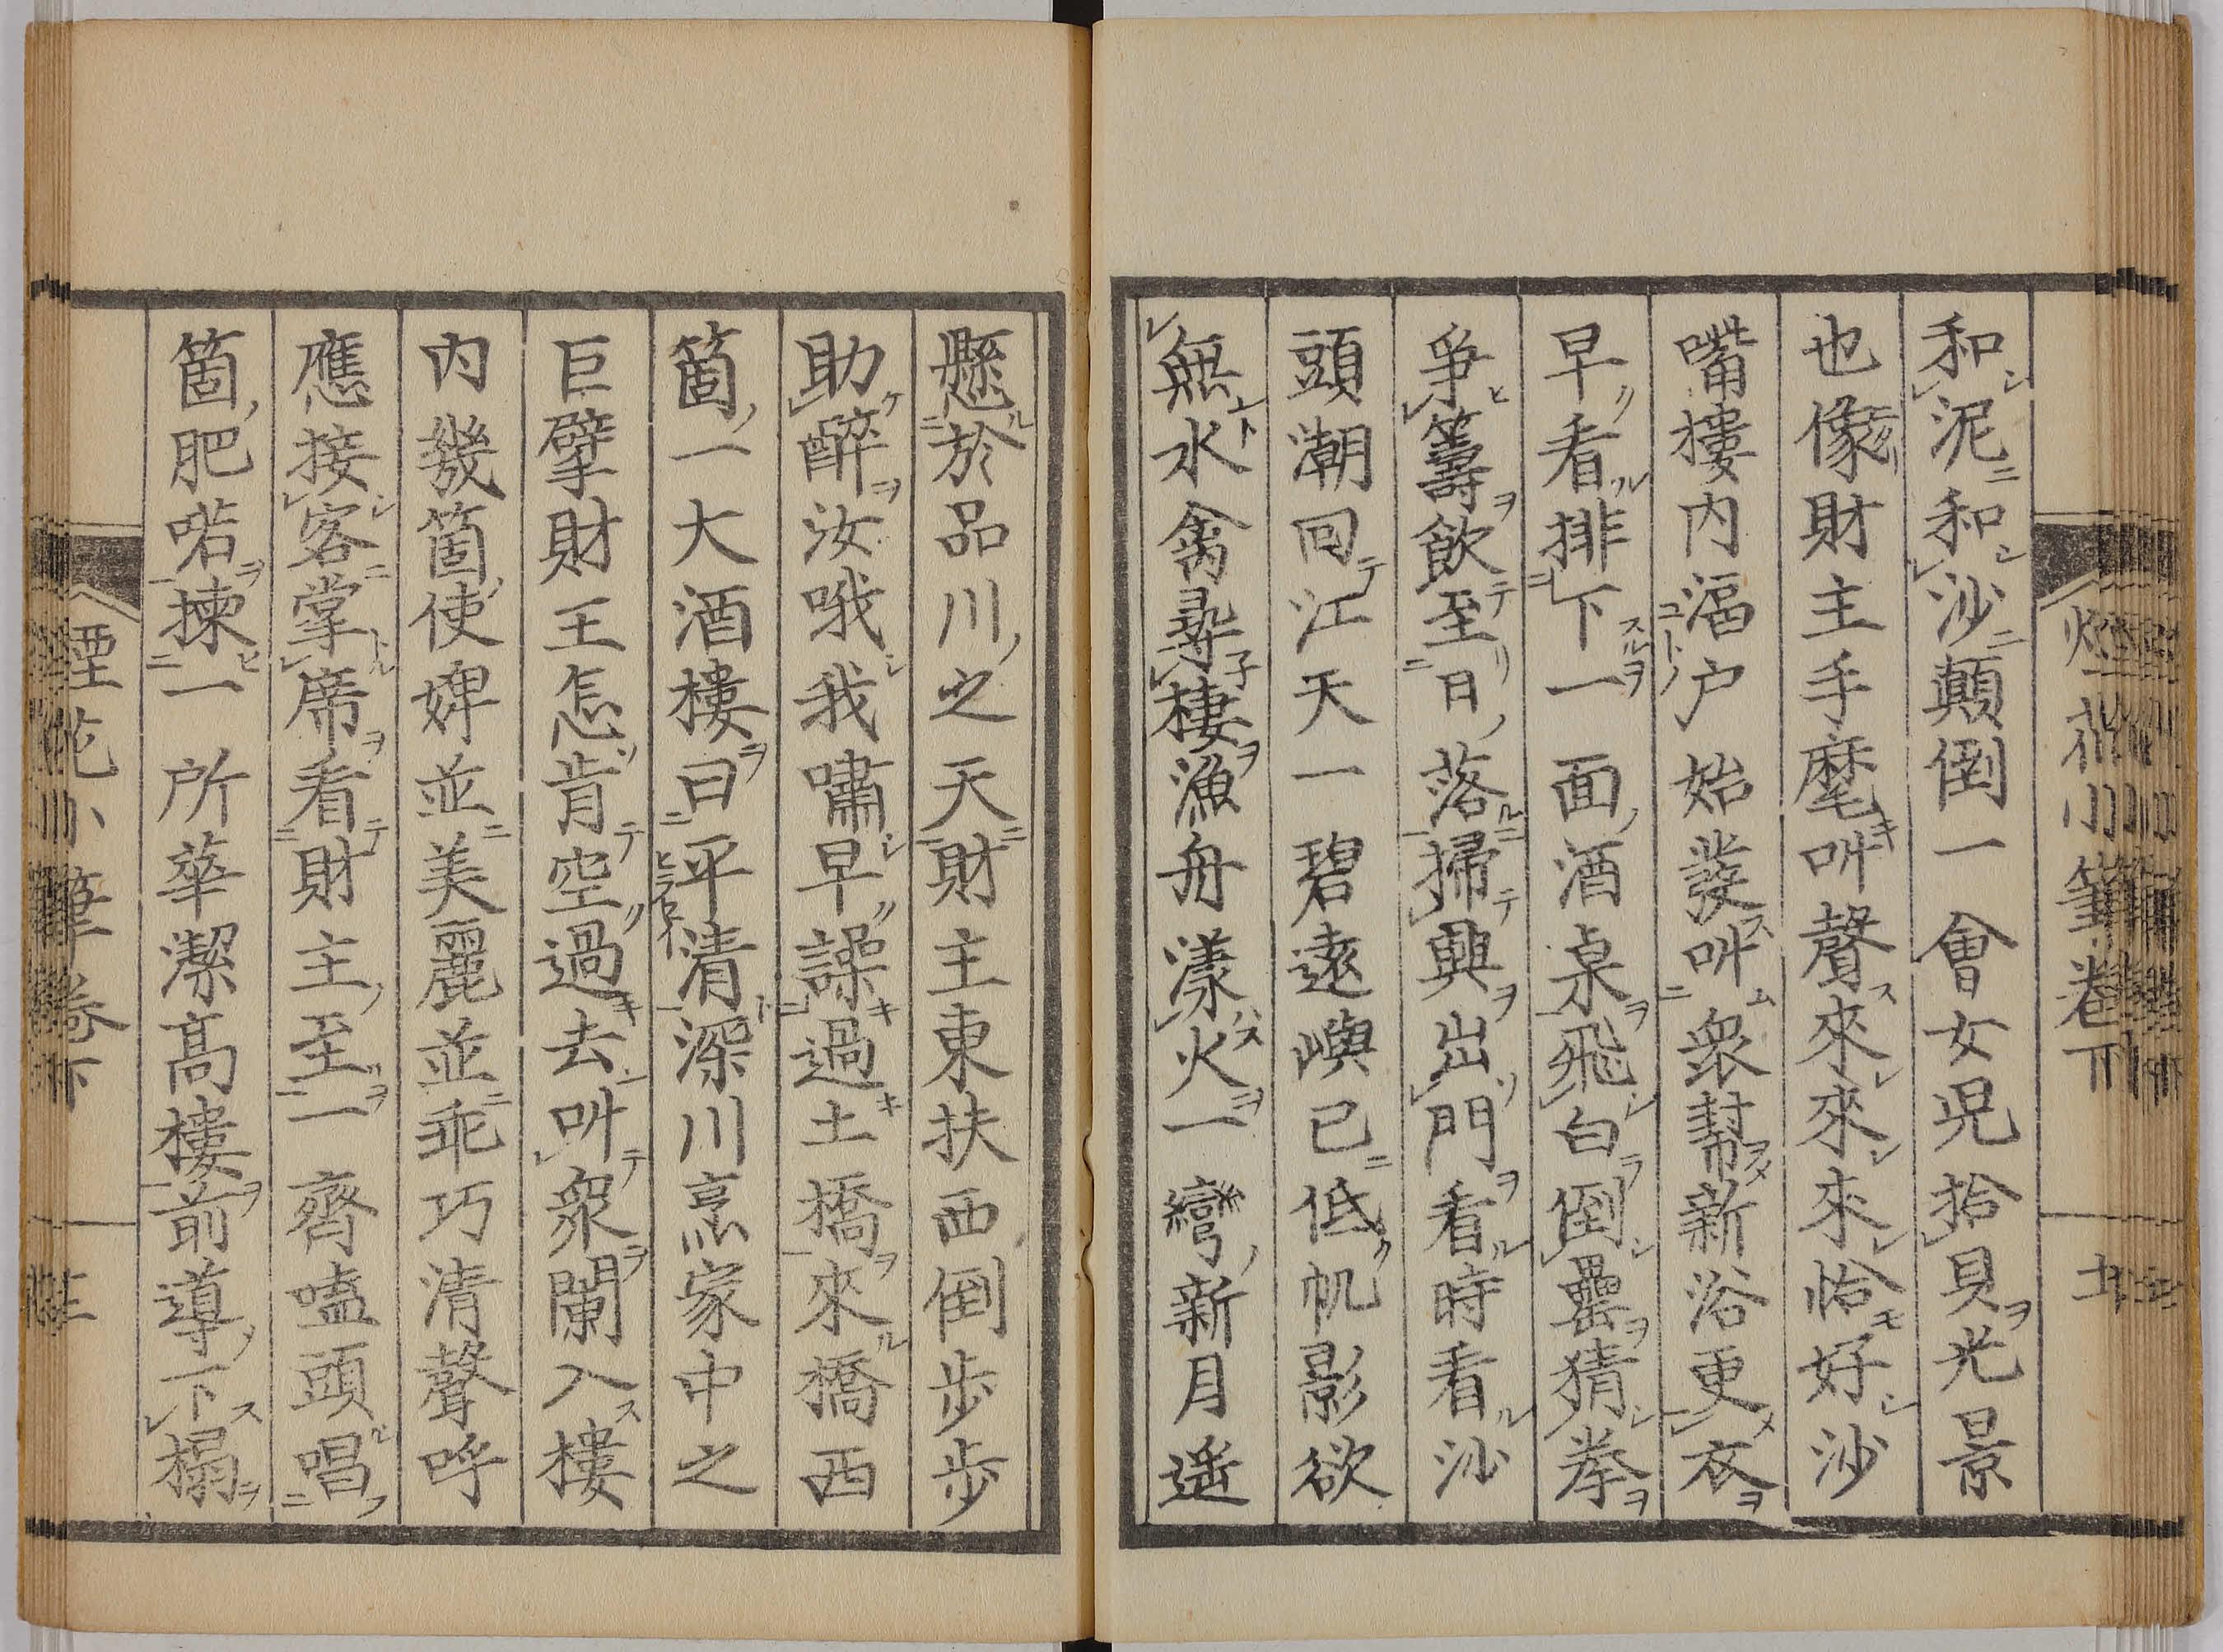 和泥和沙顛倒一會女児拾貝光景
也像財主手麾叫聲來來來恰好沙
嘴樓内湢户始發叫衆幇新浴更衣
早看排下一面酒桌飛白倒罍猜拳
爭籌飲至日落掃興出門看時看沙
頭潮回江天一碧遠嶼已低帆影欲
無水禽尋棲漁舟漾火一彎新月遥
懸於品川之天財主東扶西倒歩歩
助醉汝哦我嘯早譟過土橋來橋西
箇一大酒樓曰平清深川烹家中之
巨擘財王怎肯空過去叫衆闌入樓
内幾箇使婢並美麗並乖巧清聲呼
應接客掌席看財主至一齊嗑頭唱
箇肥喏揀一所華潔高樓前導下榻
煙花小筆卷下